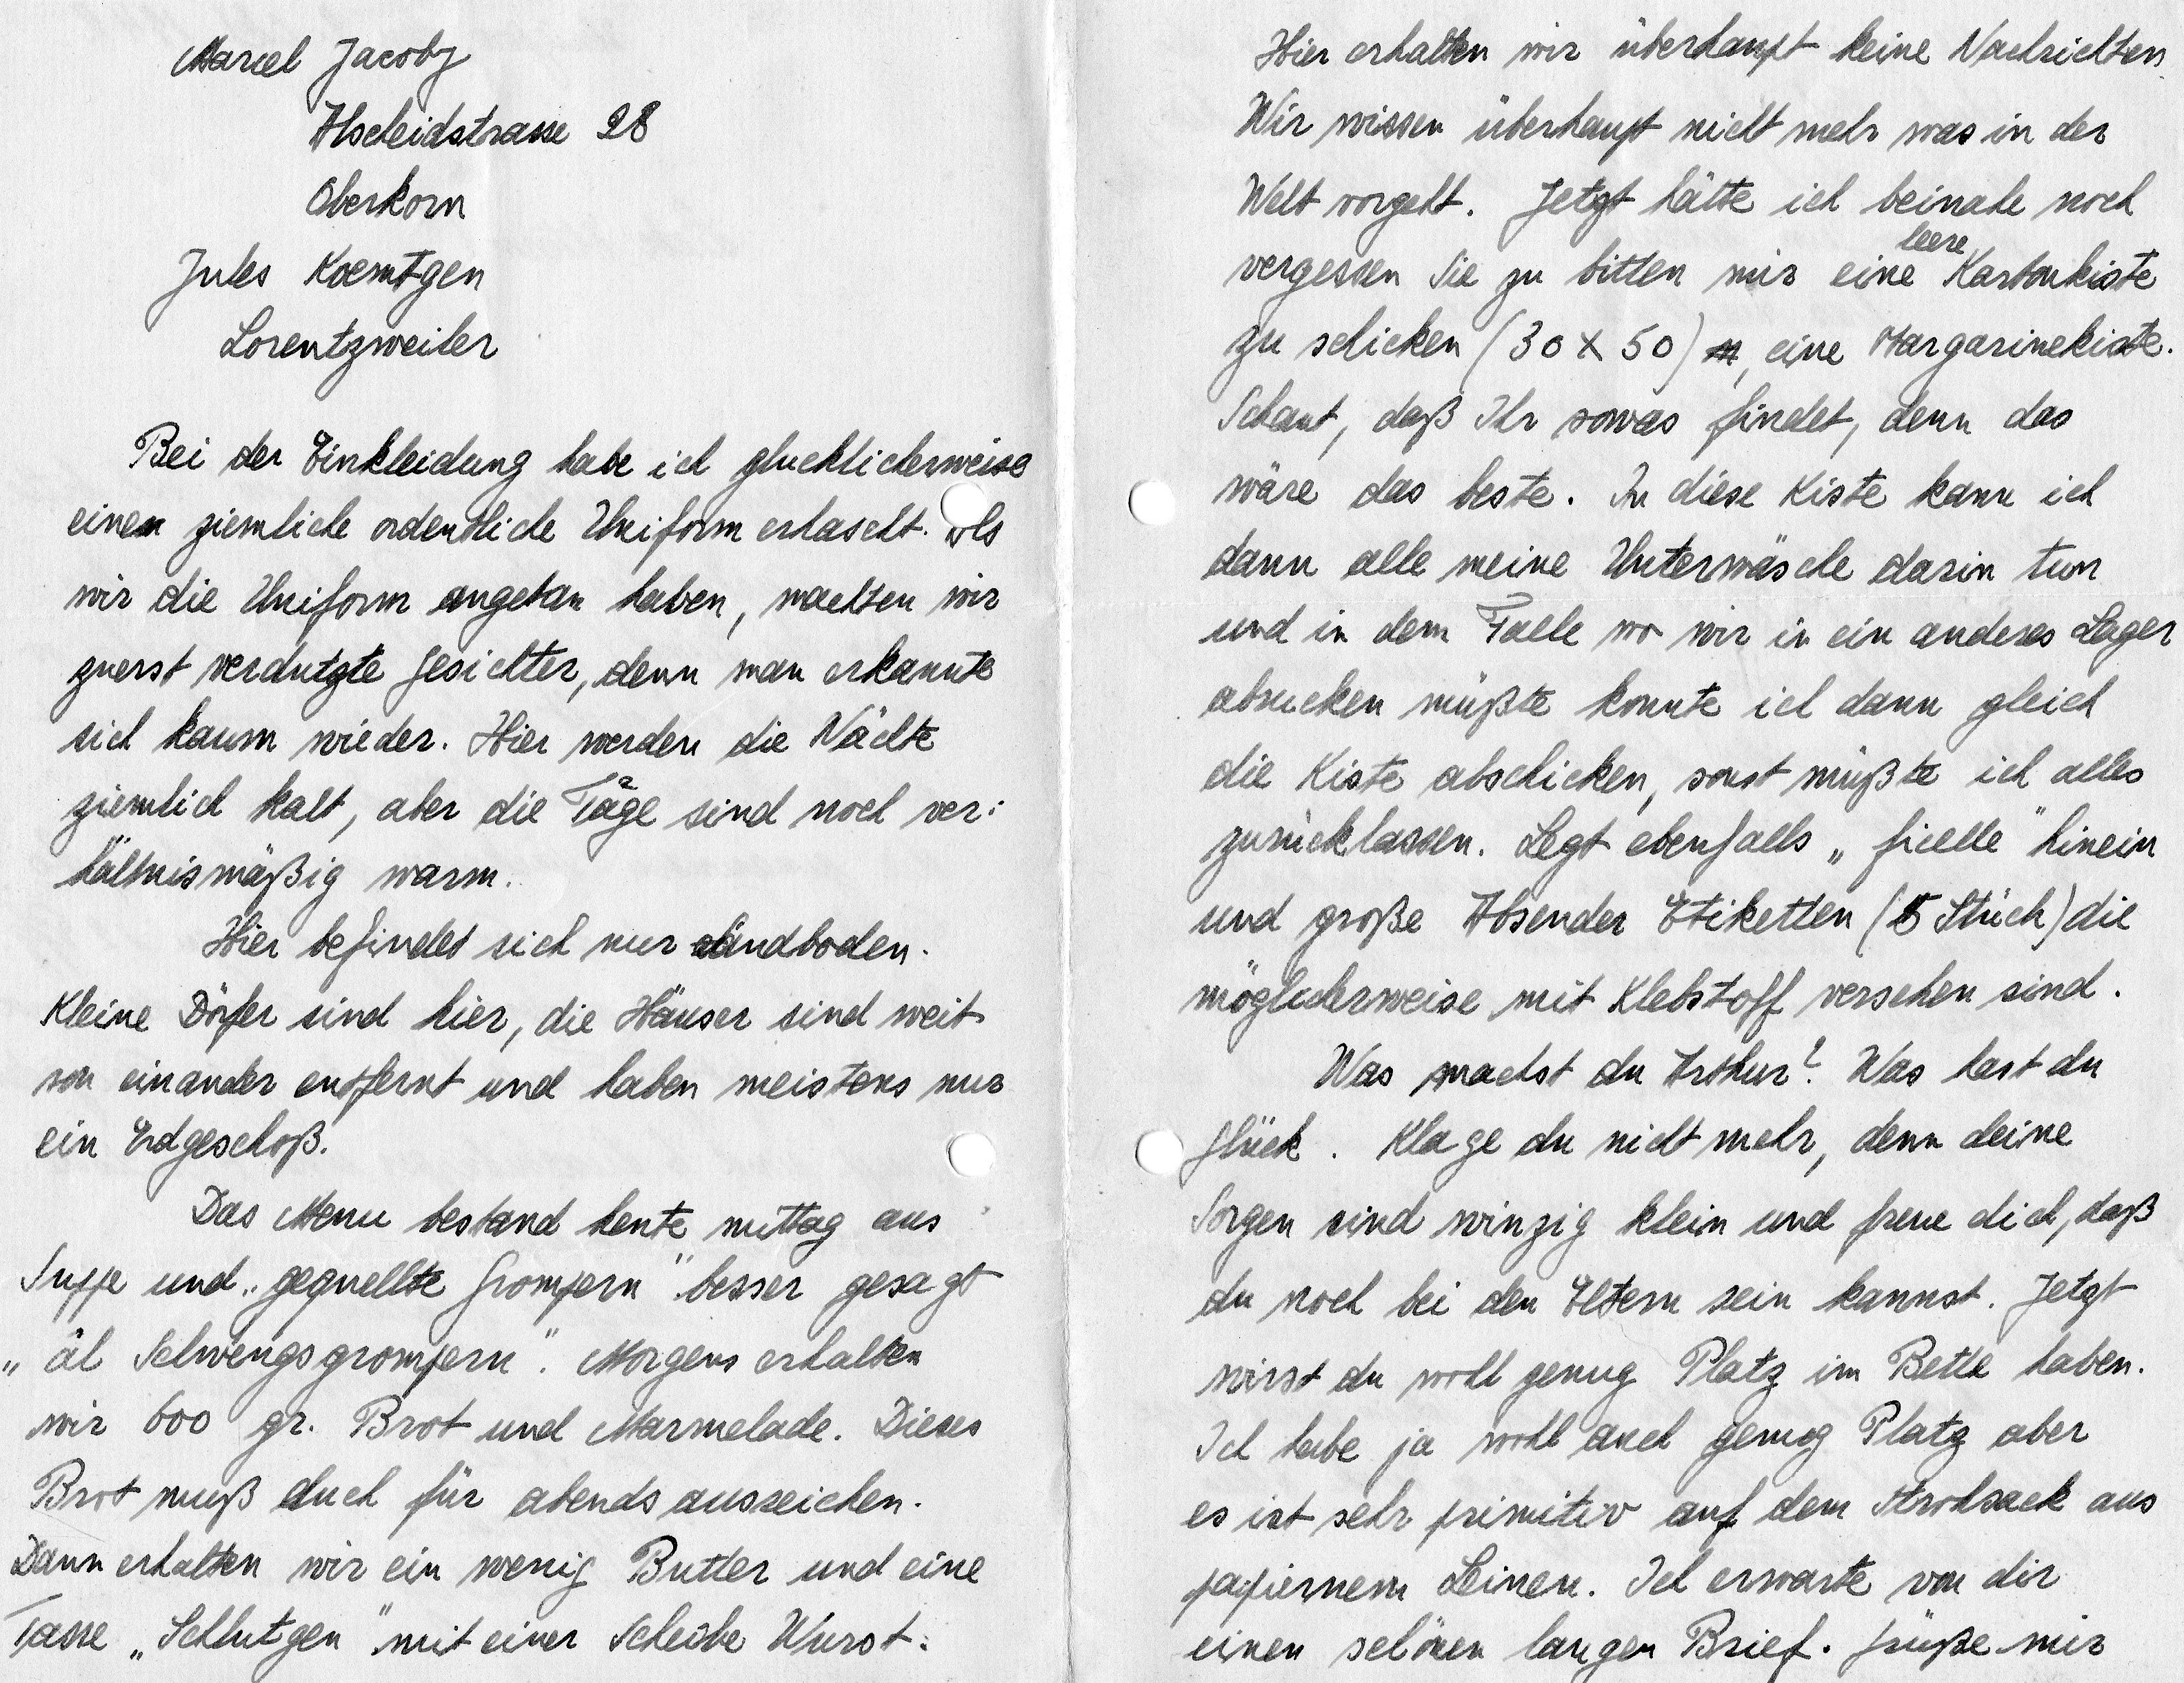 Marcel Jacoby
Alscheidstrasse 28
Oberkorn
Jules Koemtgen
Lorentzweiler
Bei der Einkleidung habe ich glucklicherweise
einen ziemliche ordentliche Uniform erhascht. Als
wir die Uniform angetan haben, machten wir
zuerst verdutzte Gesichter, denn man erkannte
sich kaum wieder. Hier werden die Nächte
ziemlich kalt, aber die Tage sind noch ver:
hältnismäßig warm.
Hier befindet sich nur Sandboden.
Kleine Dörfer sind hier, die Häuser sind weit
von einander entfernt und haben meistens nur
ein Erdgeschoß.
Das Menu bestand heute mittag aus
Suppe und „gequellte Grompern" besser gesagt
„äl Schwengsgrompern". Morgens erhalten
wir 600 gr. Brot und Marmelade. Dieses
Brot muß auch für abends ausreichen.
Dann erhalten wir ein wenig Butter und eine
Tasse „Schlutgen" mit einer Scheibe Wurst.
Hier erhalten wir überhaupt keine Nachrichten.
Wir wissen überhaupt nicht mehr was in der
Welt vorgeht. Jetzt hätte ich beinahe noch
vergessen Sie zu bitten mir eine leere Kartonkiste
zu schicken (30 x 50), eine Margarinekiste.
Schaut, daß Ihr sowas findet, denn das
wäre das beste. In diese Kiste kann ich
dann alle meine Unterwäsche darin tun
und in dem Falle wo wir in ein anderes Lager
abrucken müßte konnte ich dann gleich
die Kiste abschicken, sonst müßte ich alles
zurücklassen. Legt ebenfalls „ficelle" hinein
und große Absender Etiketten (5 Stück) die
möglicherweise mit Klebstoff versehen sind.
Was machst du Arthur? Was hast du
Glück. Klage du nicht mehr, denn deine
Sorgen sind winzig klein und freue dich, daß
du noch bei den Eltern sein kannst. Jetzt
wirst du wohl genug Platz im Bette haben.
Ich habe ja wohl auch genug Platz aber
es ist sehr primitiv auf dem Strohsack aus
papiernem Leinen. Ich erwarte von dir
einen schönen langen Brief. Grüße mir